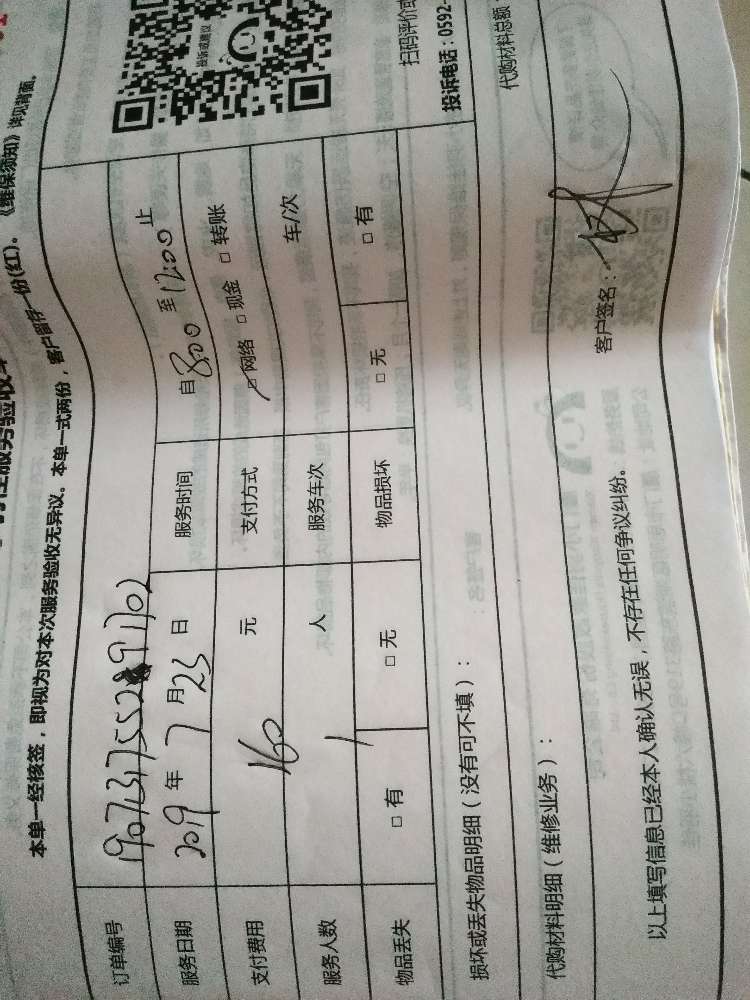 本单一经核签，即视为对本次服务验收无异议。本单一式两份，客户留存一份(红)。《维保须知》详见背面。
投诉或建议
扫码评价或
投诉电话：0592-
订单编号
服务日期 2019 年 7 月 23 日 服务时间 自 8:00 至 12:00 止
支付费用 160 元 支付方式 □网络 □现金 □转账
服务人数 1 人 服务车次 车/次
物品丢失 □有 □无 物品损坏 □无 □有
损坏或丢失物品明细（没有可不填）：
代购材料明细（维修业务）： 代购材料总额
以上填写信息已经本人确认无误，不存在任何争议纠纷。
客户签名：